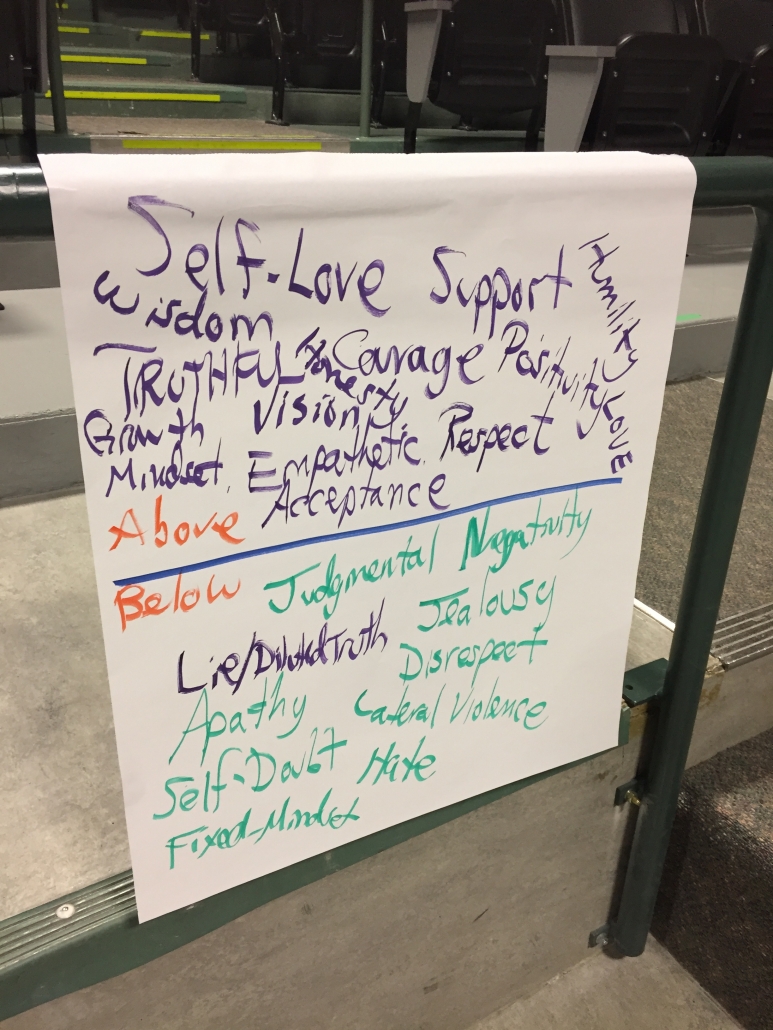 Self-Love Support Humility
Wisdom
TRUTHFUL Honesty Courage Positivity Love
Growth Vision
Mindset, Empathetic, Respect
Above Acceptance
Below Judgmental Negativity
Lie/Diluted Truth Jealousy
Apathy Disrespect
Lateral Violence
Self-Doubt Hate
Fixed-Mindset